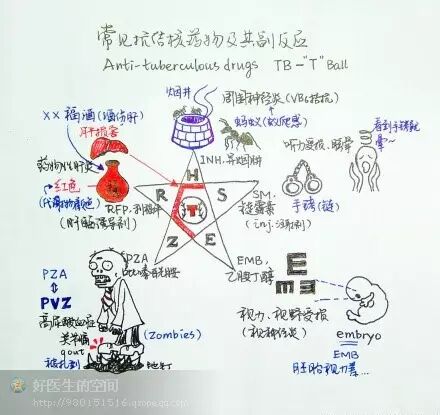 常见抗结核药物及其副反应
Anti-tuberculous drugs TB-"T" Ball
烟井
周围神经炎(VB6拮抗)
××福酒(酒伤肝)
蚂蚁(蚁爬感)
看到手铐就晕~
肝损害
听力受损、眩晕
药物性肝炎
INH,异烟肼
H
红色
R
S
SM,
链霉素
(inj.注射剂)
手铐(链)
(代谢物颜色)
RFP,利福平
T
(肝酶诱导剂)
Z
E
PZA
吡嗪酰胺
EMB,
乙胺丁醇
PZA
PVZ
E
m
视力、视野受损
(视神经炎)
高尿酸血症
关节痛
gout
(Zombies)
embryo
EMB
胚胎视力暴...
被扎到
地刺
好医生的空间
http://980151516.qzone.qq.com